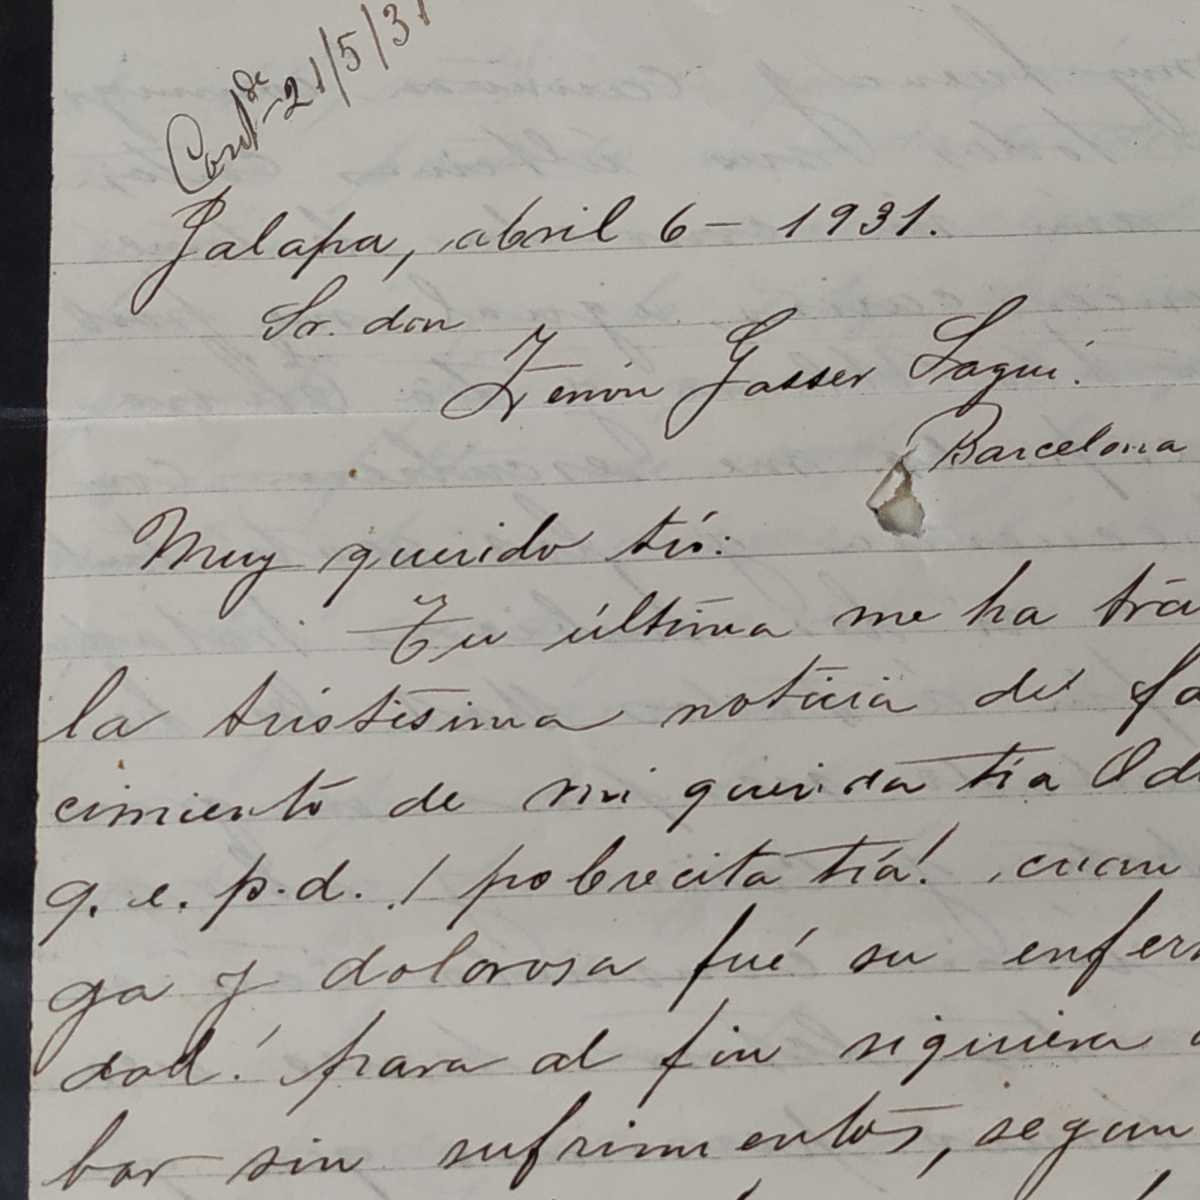 Contde - 21/5/31
Jalapa, abril 6 - 1931.
Sr. don
Zenón Gasser Sagui.
Barcelona
Muy querido tío:
Tu última me ha tra
la tristísima noticia del fa
cimiento de mi querida tía Ode
q. e. p. d. ¡pobrecita tía! ¡cuan
ga y dolorosa fué su enfer
dad! para al fin siquiera a
bar sin sufrimientos, segun